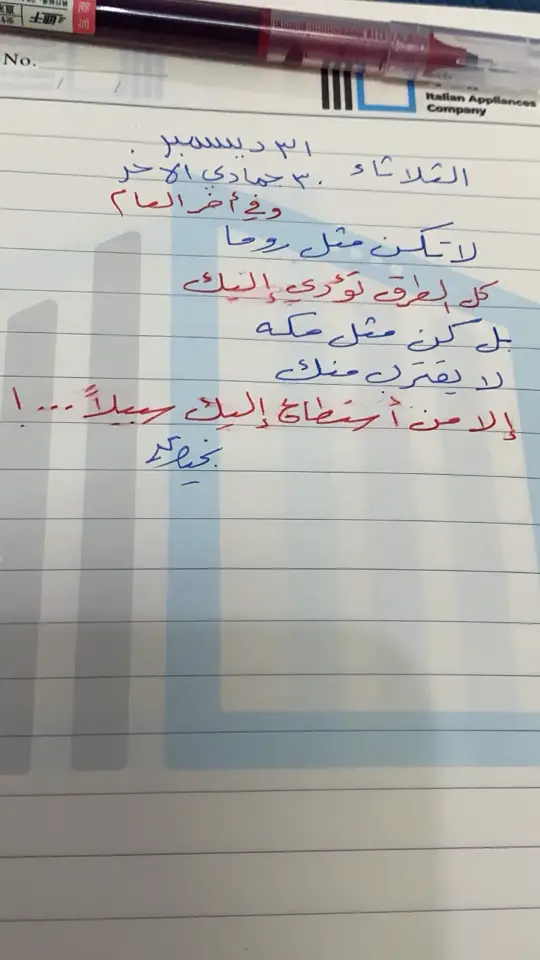 No. / /
Italian Appliances
Company
٣١ ديسمبر
الثلاثاء ٣٠ جمادي الآخر
وفي أخر العام
لا تكن مثل روما
كل الطرق تؤدي إليك
بل كن مثل مكه
لا يقترب منك
إلا من أستطاع إليك سبيلاً...!